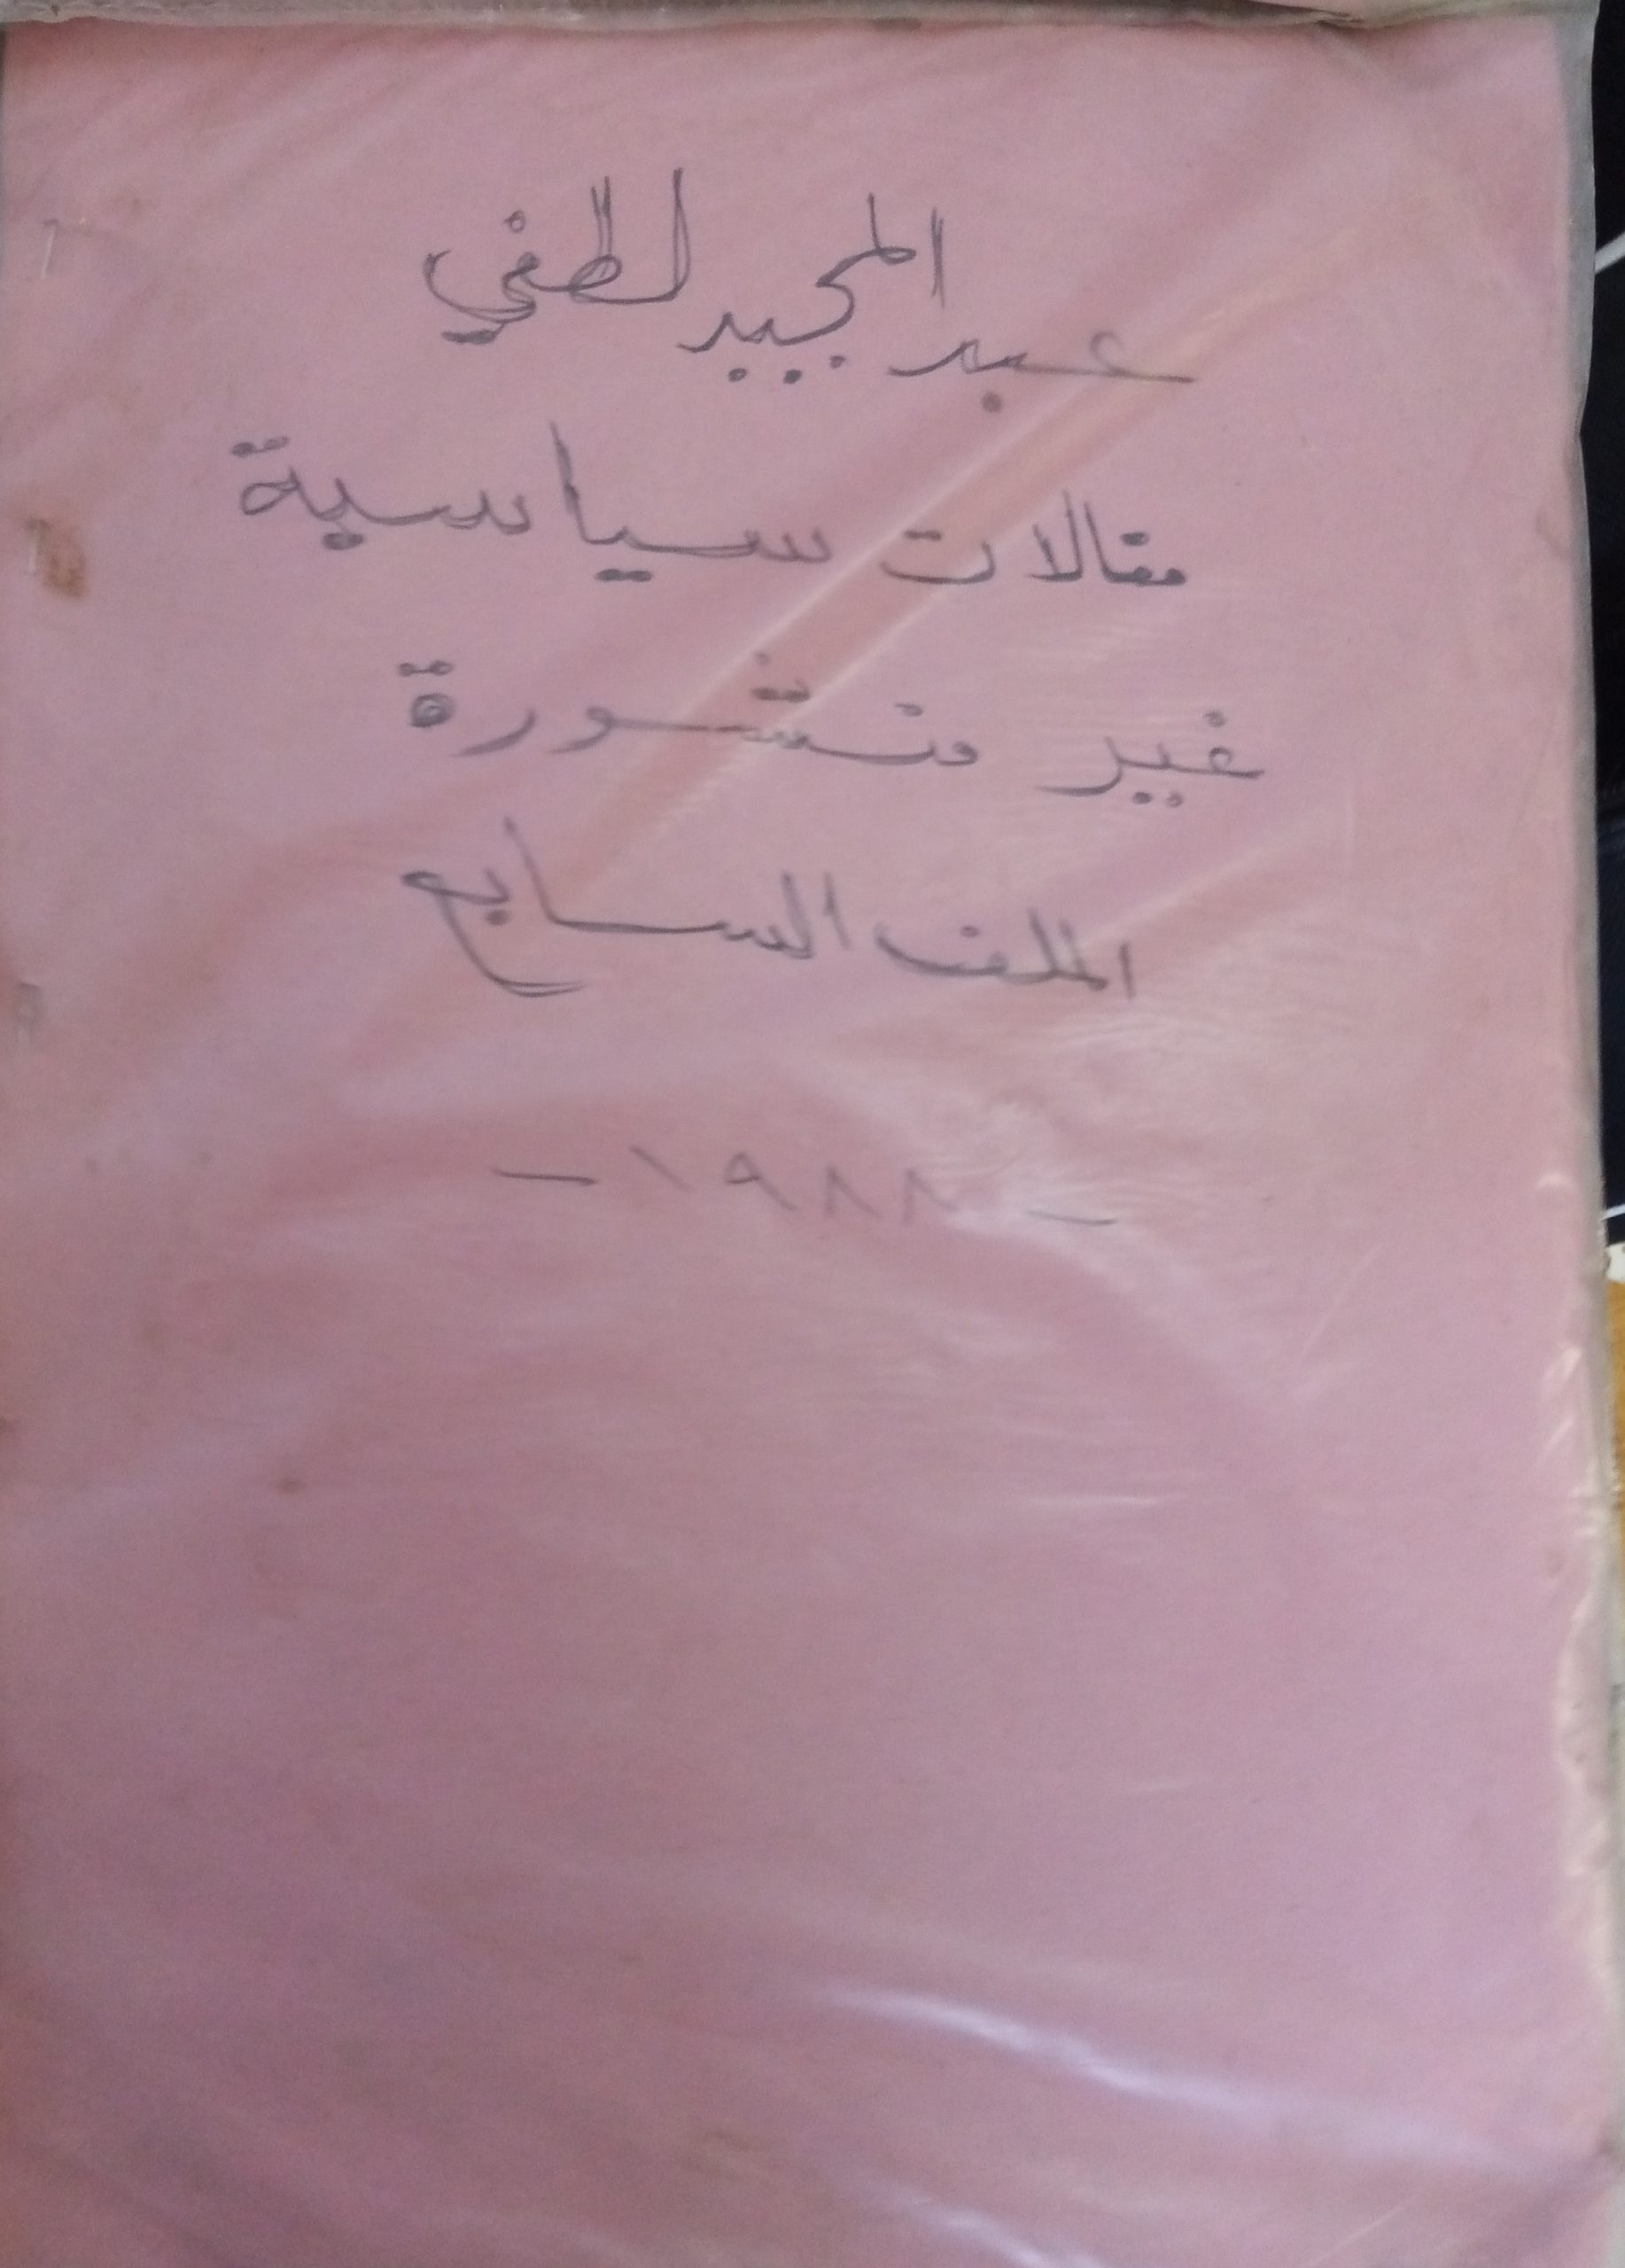 عبد المجيد لطفي
مقالات سياسية
غير منشورة
الملف السابع
- ١٩٨٨ -